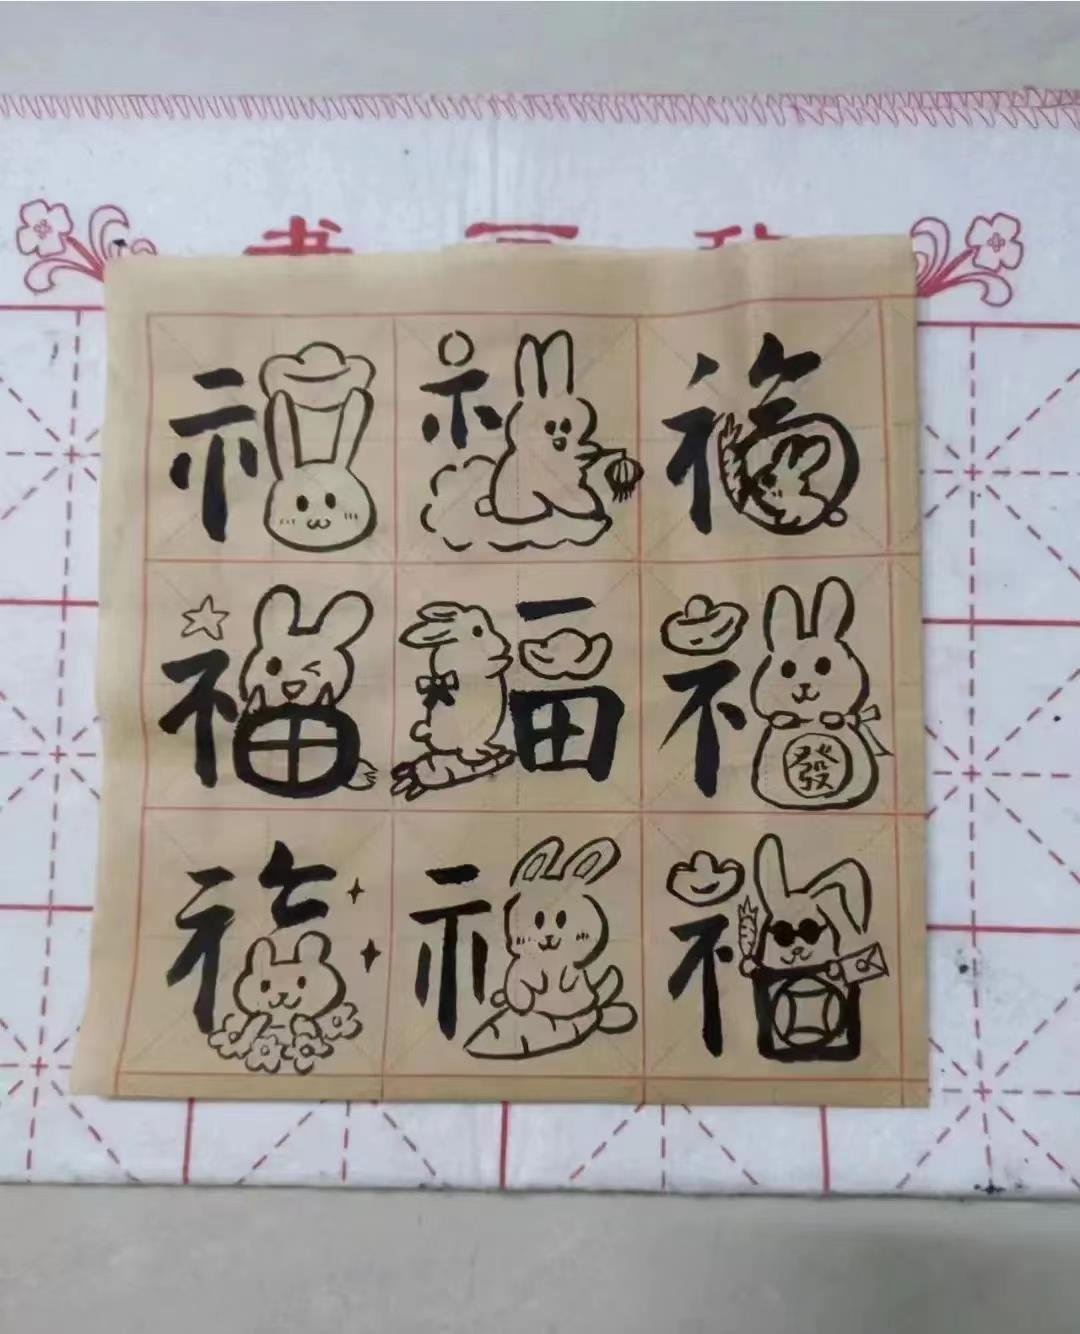 福 福 福
福 福 福 發
福 福 福